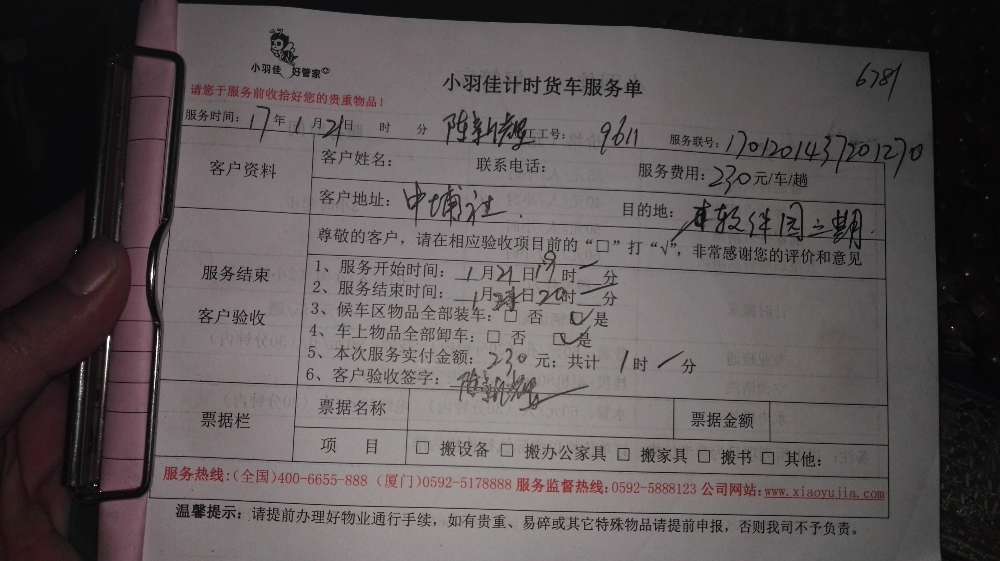 小羽佳 好管家
小羽佳计时货车服务单
6781
请您于服务前收拾好您的贵重物品!
服务时间: 17年1月21日 时 分 员工工号: 9611 服务联号: 1701201437201270
客户资料
客户姓名: 联系电话: 服务费用: 230元/车/趟
客户地址: 中埔社. 目的地: 软件园二期
服务结束
客户验收
尊敬的客户,请在相应验收项目前的“□”打“√”,非常感谢您的评价和意见
1、服务开始时间: 1月21日19时 分
2、服务结束时间: 1月 日20时 分
3、候车区物品全部装车: □ 否 ☑是
4、车上物品全部卸车: □ 否 ☑是
5、本次服务实付金额: 230元; 共计 1时 分
6、客户验收签字:
票据栏
票据名称 票据金额
项 目 □ 搬设备 □ 搬办公家具 □ 搬家具 □ 搬书 □ 其他:
服务热线:(全国)400-6655-888 (厦门)0592-5178888 服务监督热线:0592-5888123 公司网站:www.xiaoyujia.com
温馨提示:请提前办理好物业通行手续,如有贵重、易碎或其它特殊物品请提前申报,否则我司不予负责。